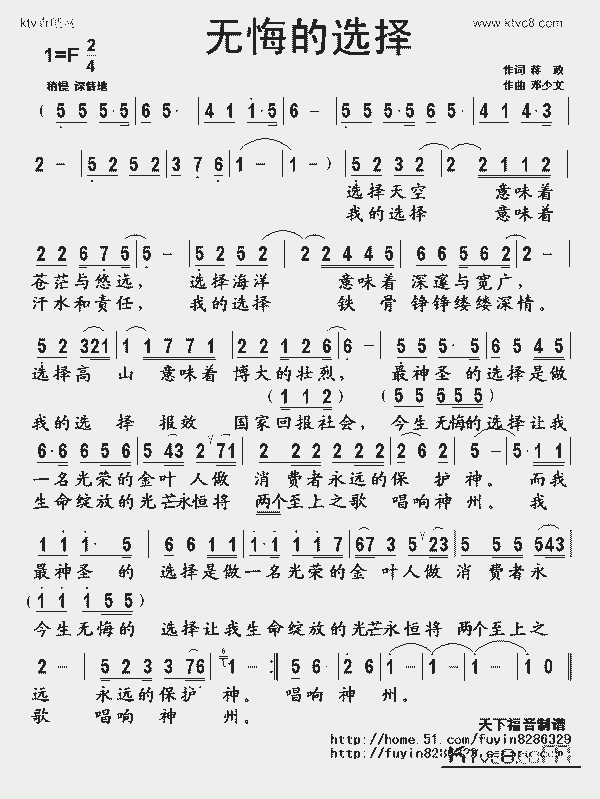 www.ktvc8.com
无悔的选择
1=F 2/4
作词 蒋 政
稍慢 深情地
作曲 邓少文
( 5 5 5·5 | 6 5· | 4 1 1·5 | 6 - | 5 5 5·5 | 6 5· | 4 1 4·3 |
2 - | 5 2 5 2 | 3 7 6 | 1 - | 1 - ) | 5 2 3 2 | 2 2 1 1 2 |
选择天空 意味着
我的选择 意味着
2 2 6 7 5 | 5 - | 5 2 5 2 | 2 2 4 4 5 | 6 6 5 6 2 | 2 - |
苍茫与悠远, 选择海洋 意味着 深邃与宽广,
汗水和责任, 我的选择 铁 骨 铮铮缕缕深情。
5 2 321 | 1 1 7 7 1 | 2 2 1 2 6 | 6 - | 5 5 5· 5 | 6 5 4 5 |
选择高 山 意味着 博大的壮烈, 最神圣 的选择是做
( 1 1 2 ) ( 5 5 5 5 5 )
我的选 择 报效 国家回报社会, 今生无悔的选择让我
6·6 6 5 6 | 5 43 2 71 | 2 2 2 2 2 | 2 6 2 | 5 - | 5·1 1 |
一名光荣的金叶 人做 消 费者永远的保 护 神。 而我
生命绽放的光芒永恒将 两个至上之歌 唱响神 州。 我
1 1 1· 5 | 6 6 1 1 | 1·1 1 1 7 | 67 3 5 23 | 5 5 5 543 |
最神圣 的 选择是做一名光荣的金 叶人做 消 费者永
( 1 1 1 5 5 )
今生无悔的 选择让我生命绽放的光芒永恒将 两个至上之
2 - | 5 2 3 3 76 | 1 - :| 5· 6 | 2 6 | 1 - | 1 - | 1 0 ‖
远 永远的保护 神。 唱响神 州。
歌 唱响 神 州。
天下福音制谱
http://home.51.com/fuyin8286329